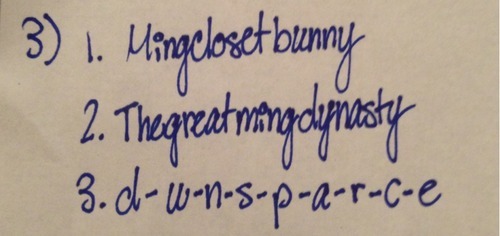 3) 1. Mingclosetbunny
2. Thegreatmingdynasty
3. d-w-n-s-p-a-r-c-e